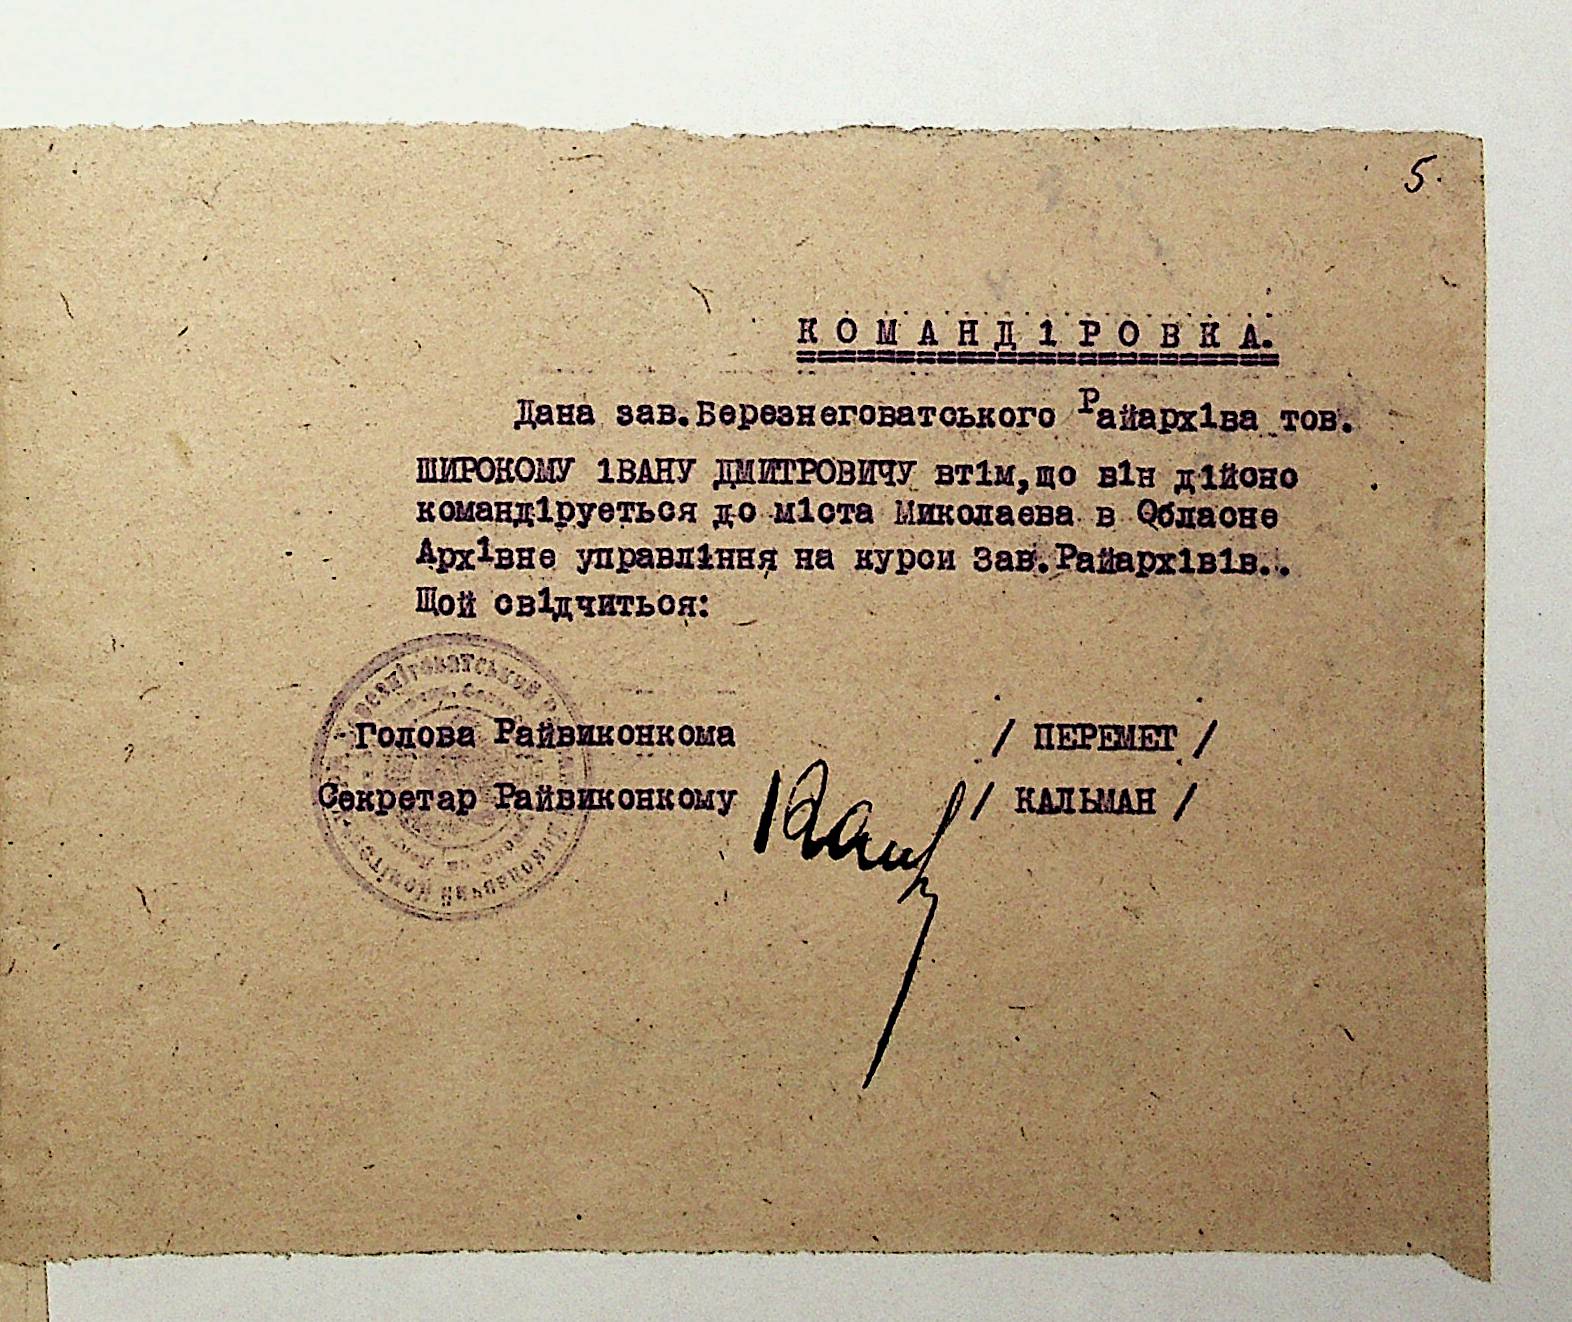 5.
К О М А Н Д 1 Р О В К А.
Дана зав.Березнеговатського Райарх1ва тов.
ШИРОКОМУ 1ВАНУ ДМИТРОВИЧУ вт1м,що в1н д1йсно
команд1руеться до м1ста Миколаева в Обласне
Арх1вне управл1ння на курси Зав.Райарх1в1в..
Щой св1дчиться:
Голова Райвиконкома / ПЕРЕМЕТ /
Секретар Райвиконкому / КАЛЬМАН /